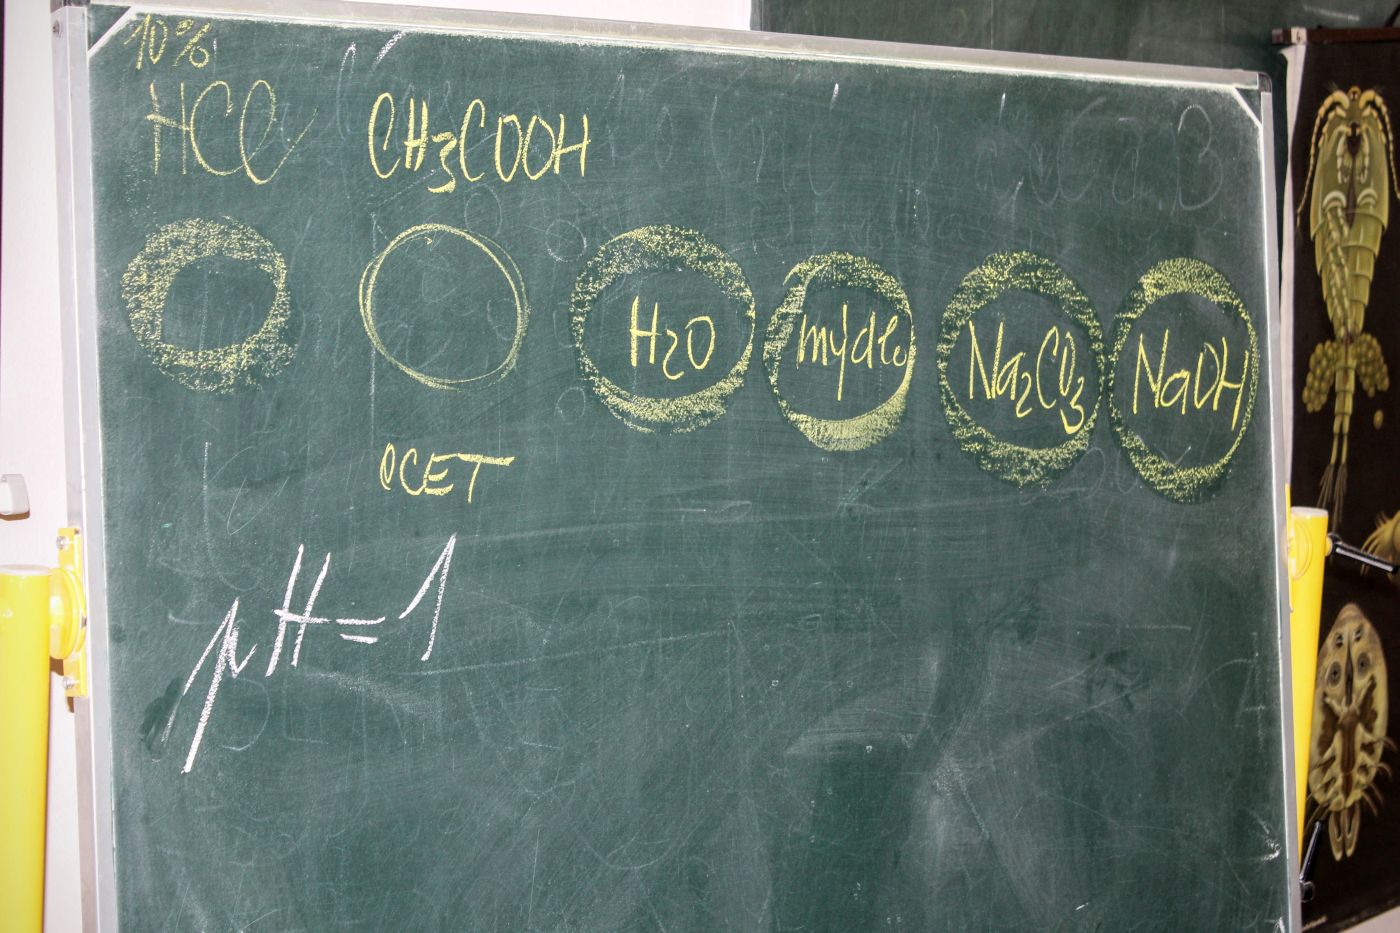 10%
HCl CH3COOH
H2O mydło Na2CO3 NaOH
OCET
pH=1